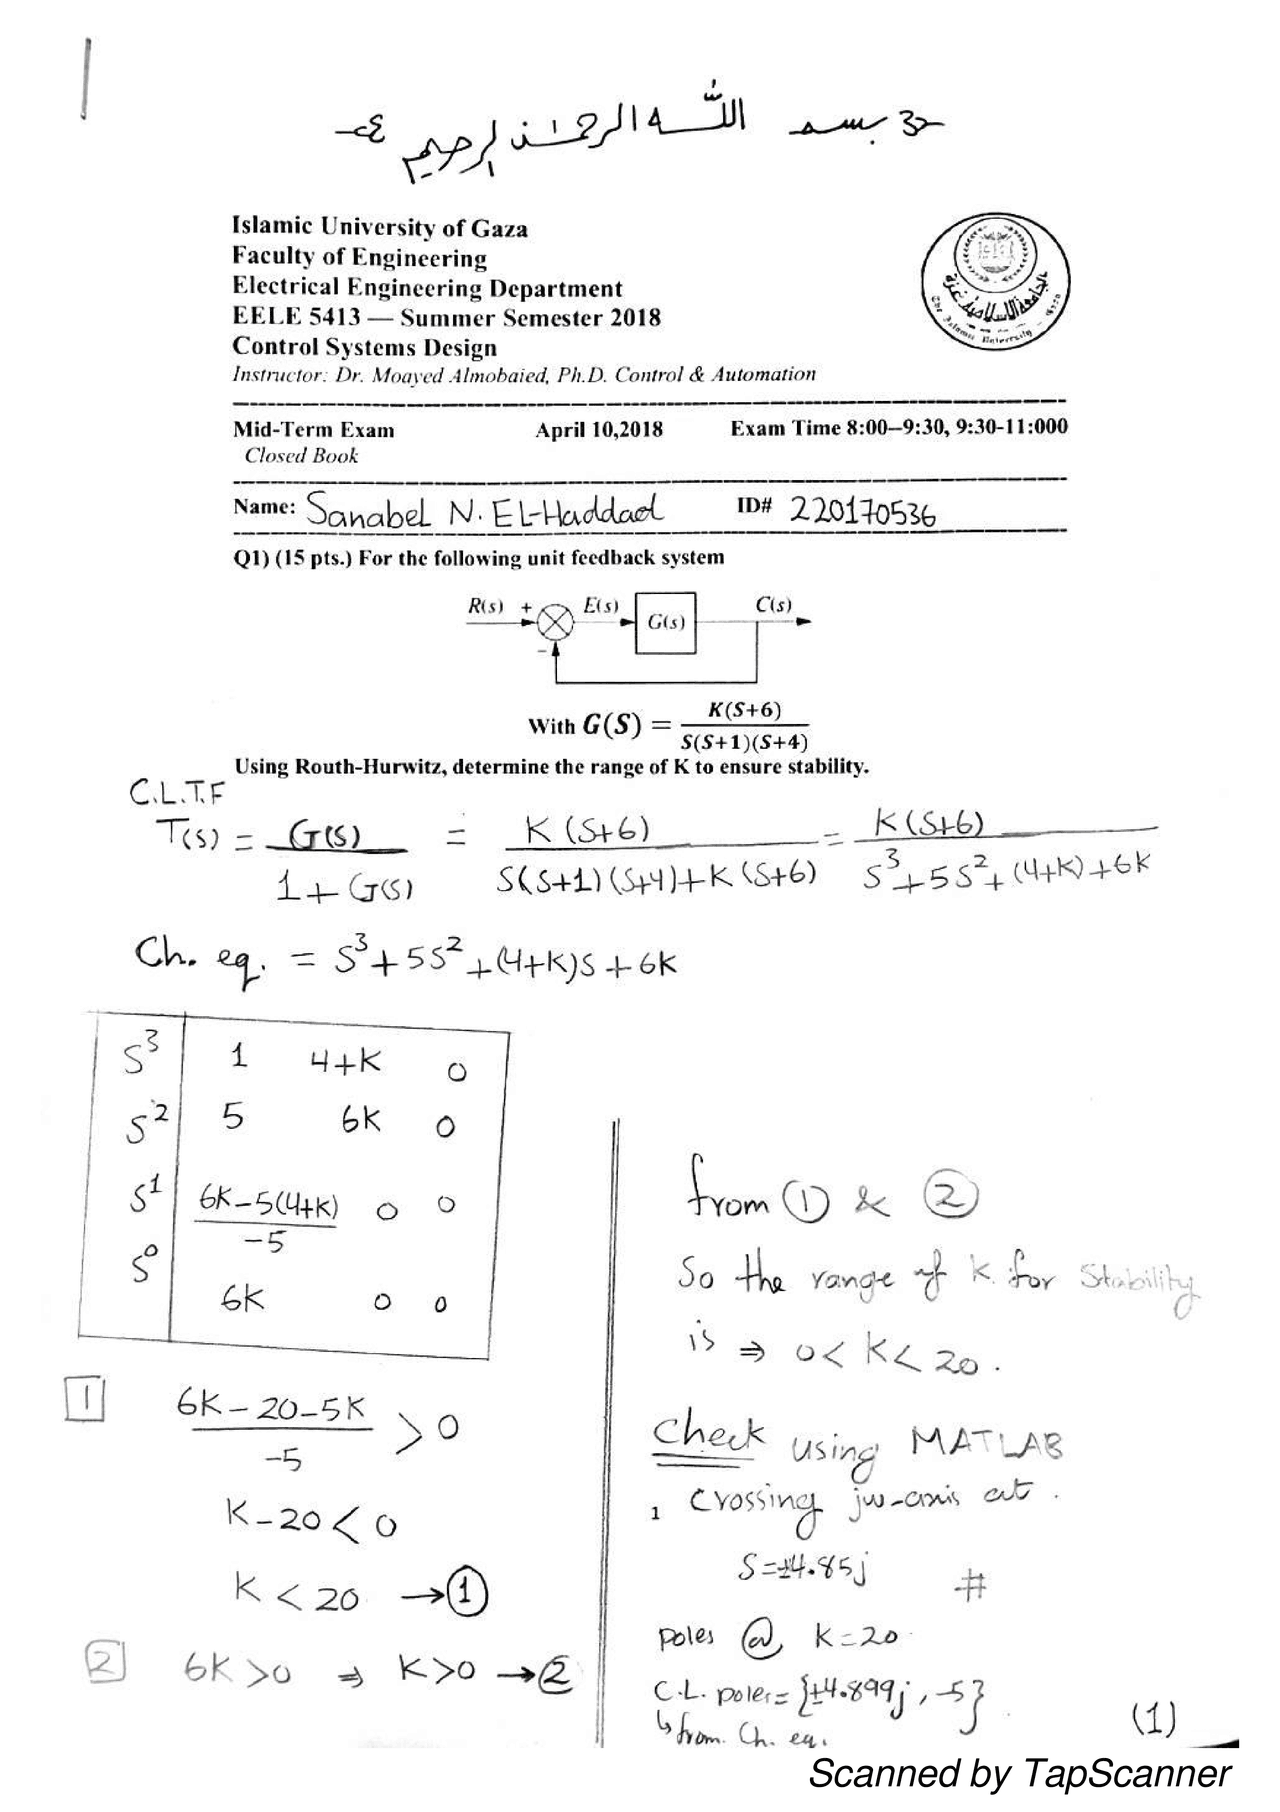 بسم الله الرحمن الرحيم
Islamic University of Gaza
Faculty of Engineering
Electrical Engineering Department
EELE 5413 — Summer Semester 2018
Control Systems Design
Instructor: Dr. Moayed Almobaied, Ph.D. Control & Automation
الجامعة الإسلامية غزة
The Islamic University - Gaza
Mid-Term Exam April 10,2018 Exam Time 8:00–9:30, 9:30-11:000
Closed Book
Name: Sanabel N. EL-Haddad ID# 220170536
Q1) (15 pts.) For the following unit feedback system
R(s) + E(s) G(s) C(s)
−
With G(S) = K(S+6) / S(S+1)(S+4)
Using Routh-Hurwitz, determine the range of K to ensure stability.
C.L.T.F
T(s) = G(s) / 1+G(s) = K(S+6) / S(S+1)(S+4)+K(S+6) = K(S+6) / S³+5S²+(4+K)+6K
Ch. eq. = S³+5S²+(4+K)S+6K
S³ 1 4+K 0
S² 5 6K 0
S¹ 6K-5(4+K) / -5 0 0
S⁰ 6K 0 0
1 6K-20-5K / -5 > 0
K-20 < 0
K < 20 → ①
2 6K>0 ⇒ K>0 → ②
from ① & ②
So the range of K for Stability
is ⇒ 0< K< 20.
Check using MATLAB
1 Crossing jw-axis at.
S=±4.85j #
poles @ K=20
C.L. poles= {±4.899j, -5}
↳ from Ch. eq.
(1)
Scanned by TapScanner